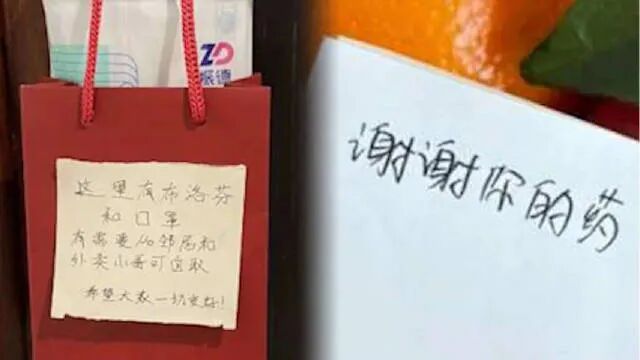 ZD
振德
这里有布洛芬
和口罩
有需要的邻居和
外卖小哥可自取
希望大家一切安好!
谢谢你的药